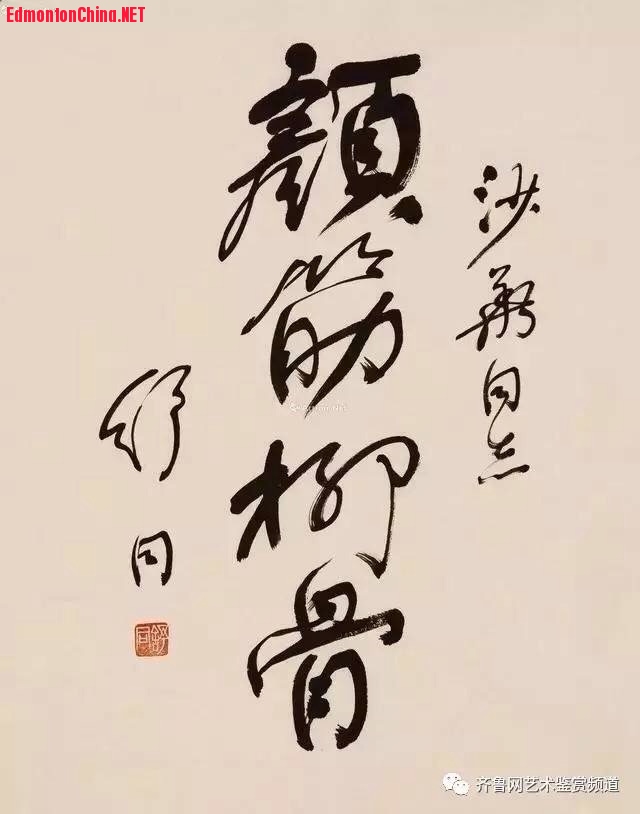 EdmontonChina.NET
沙 同志
顏筋柳骨
舒同
舒同
Artron.Net
齐鲁网艺术鉴赏频道